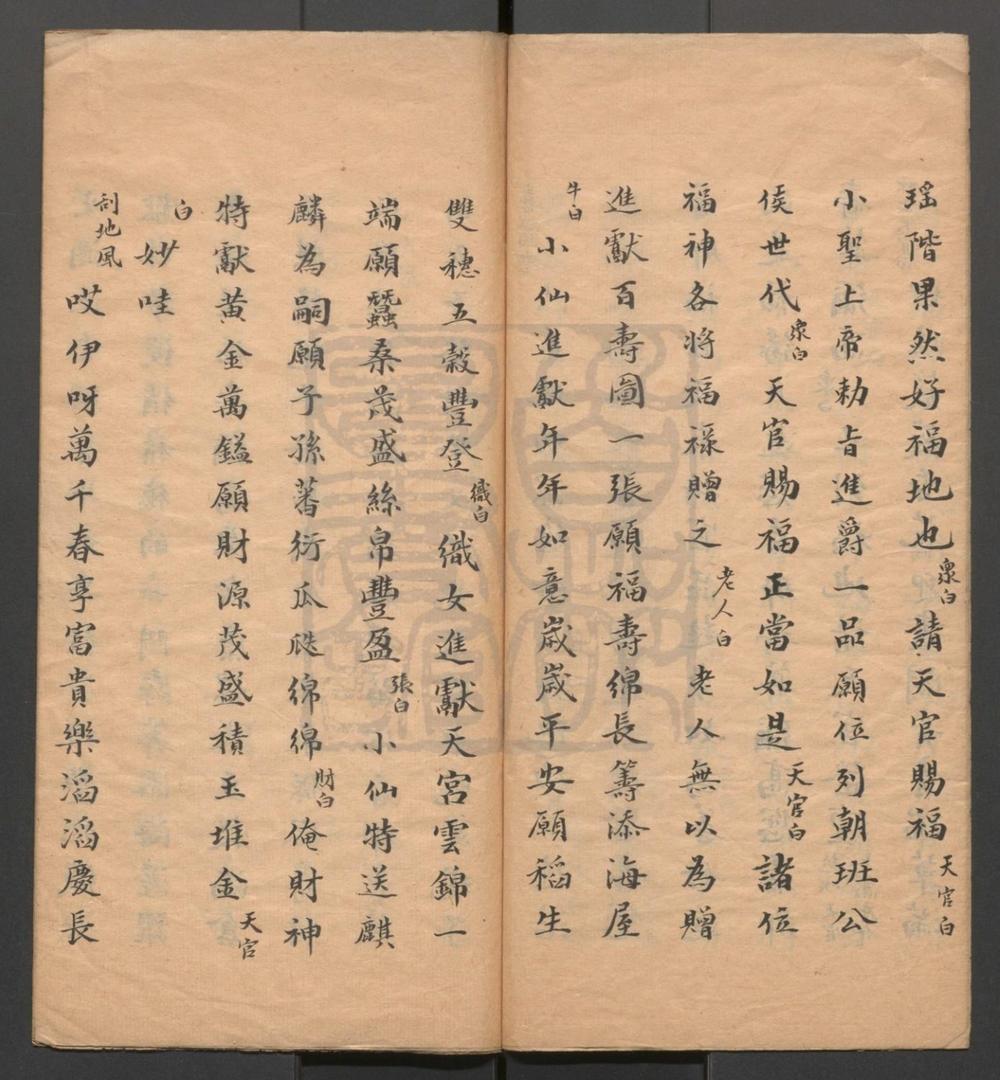 瑶階果然好福地也衆白請天官賜福天官白
小聖上帝勅㫖進爵一品願位列朝班公
侯世代衆白天官賜福正當如是天官白諸位
福神各將福祿贈之老人白老人無以為贈
進獻百壽圖一張願福壽綿長籌添海屋
牛白小仙進獻年年如意歲歲平安願稻生
雙穗五穀豐登織白織女進獻天宮雲錦一
端願蠶桑茂盛絲帛豐盈張白小仙特送麒
麟為嗣願子孫蕃衍瓜瓞綿綿財白俺財神
特獻黄金萬鎰願財源茂盛積玉堆金天官
白妙哇
刮地風哎伊呀萬千春享富貴樂滔滔慶長